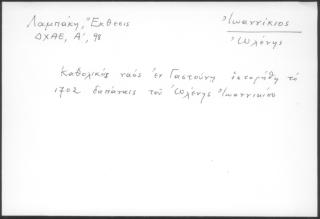 Λαμπάκη, "Ἔκθεσις
ΔΧΑΕ, Α', 98
Ἰωαννίκιος
Ὠλένης
Καθολικὸς ναὸς ἐν Γαστούνῃ ἱστορήθη τὸ
1702 δαπάναις τοῦ Ὠλένης Ἰωαννικίου